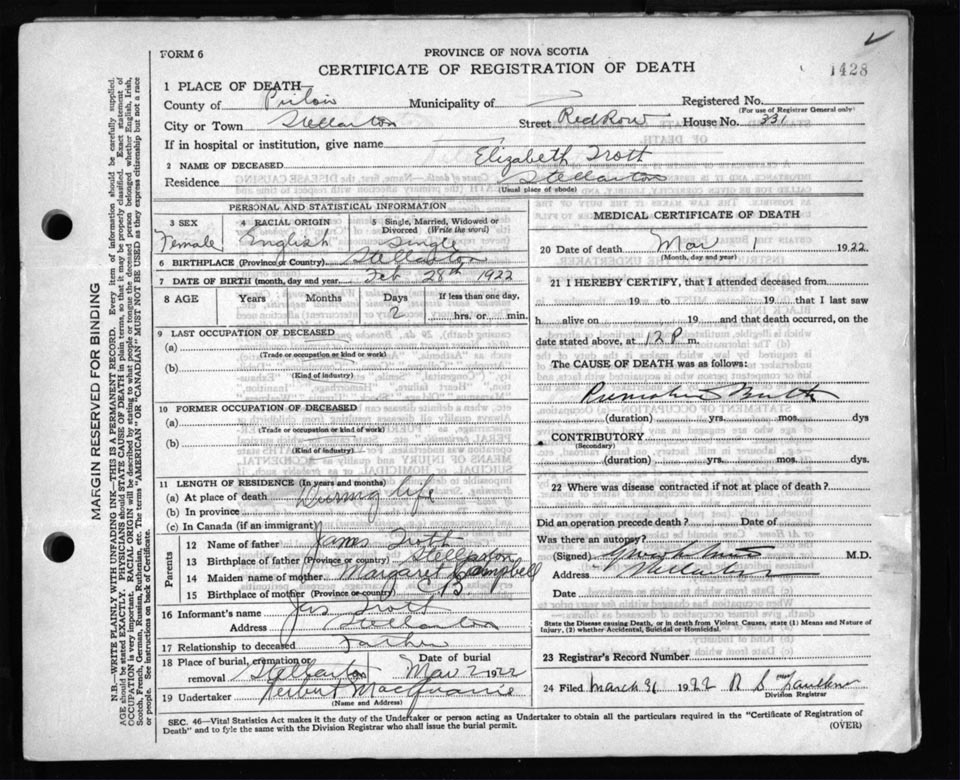 FORM 6
PROVINCE OF NOVA SCOTIA
CERTIFICATE OF REGISTRATION OF DEATH
1428
1 PLACE OF DEATH—
County of Pictou Municipality of Registered No.
(For use of Registrar General only)
City or Town Stellarton Street Red Row House No. 331
If in hospital or institution, give name
2 NAME OF DECEASED Elizabeth Trott
Residence Stellarton
(Usual place of abode)
PERSONAL AND STATISTICAL INFORMATION
3 SEX 4 RACIAL ORIGIN 5 Single, Married, Widowed or Divorced (Write the word)
Female English Single
6 BIRTHPLACE (Province or Country) Stellarton
7 DATE OF BIRTH (month, day and year) Feb 28th 1922
8 AGE Years Months Days If less than one day,
2 hrs. or min.
9 LAST OCCUPATION OF DECEASED
(a)
(Trade or occupation or kind or work)
(b)
(Kind of industry)
10 FORMER OCCUPATION OF DECEASED
(a)
(Trade or occupation or kind or work)
(b)
(Kind of industry)
11 LENGTH OF RESIDENCE (In years and months)
(a) At place of death During life
(b) In province
(c) In Canada (if an immigrant)
Parents
12 Name of father James Trott
13 Birthplace of father (Province or country) Stellarton
14 Maiden name of mother Margaret Campbell
15 Birthplace of mother (Province or country) C B
16 Informant's name Jas Trott
Address Stellarton
17 Relationship to deceased Father
18 Place of burial, cremation or removal Stellarton Date of burial Mar 2 1922
19 Undertaker Herbert MacQuarrie
(Name and Address)
MEDICAL CERTIFICATE OF DEATH
20 Date of death Mar 1 1922
(Month, day and year)
21 I HEREBY CERTIFY, that I attended deceased from
19 to 19 that I last saw
h alive on 19 and that death occurred, on
date stated above, at 12 P m.
The CAUSE OF DEATH was as follows:
Premature Birth
(duration) yrs. mos. dys
CONTRIBUTORY
(Secondary)
(duration) yrs. mos. dys
22 Where was disease contracted if not at place of death?
Did an operation precede death? Date of
Was there an autopsy?
(Signed) M.D.
Address Stellarton
Date
State the Disease causing Death, or in death from Violent Causes, state (1) Means and Nature of
Injury, (2) whether Accidental, Suicidal or Homicidal.
23 Registrar's Record Number
24 Filed March 31 1922 R S Faulkner
Division Registrar
SEC. 46—Vital Statistics Act makes it the duty of the Undertaker or person acting as Undertaker to obtain all the particulars required in the "Certificate of Registration of
Death" and to fyle the same with the Division Registrar who shall issue the burial permit.
(OVER)
MARGIN RESERVED FOR BINDING
N.B.—WRITE PLAINLY WITH UNFADING INK—THIS IS A PERMANENT RECORD. Every item of information should be carefully supplied.
AGE should be stated EXACTLY. PHYSICIANS should STATE CAUSE OF DEATH in plain terms, so that it may be properly classified. Exact statement of
OCCUPATION is very important. RACIAL ORIGIN will be described by stating to what people or tongue the deceased person belonged whether English, Irish,
Scotch, French, German, Russian, Ruthenian, etc. The terms "AMERICAN" or "CANADIAN" MUST NOT BE USED as they express citizenship but not a race
or people. See instructions on back of Certificate.